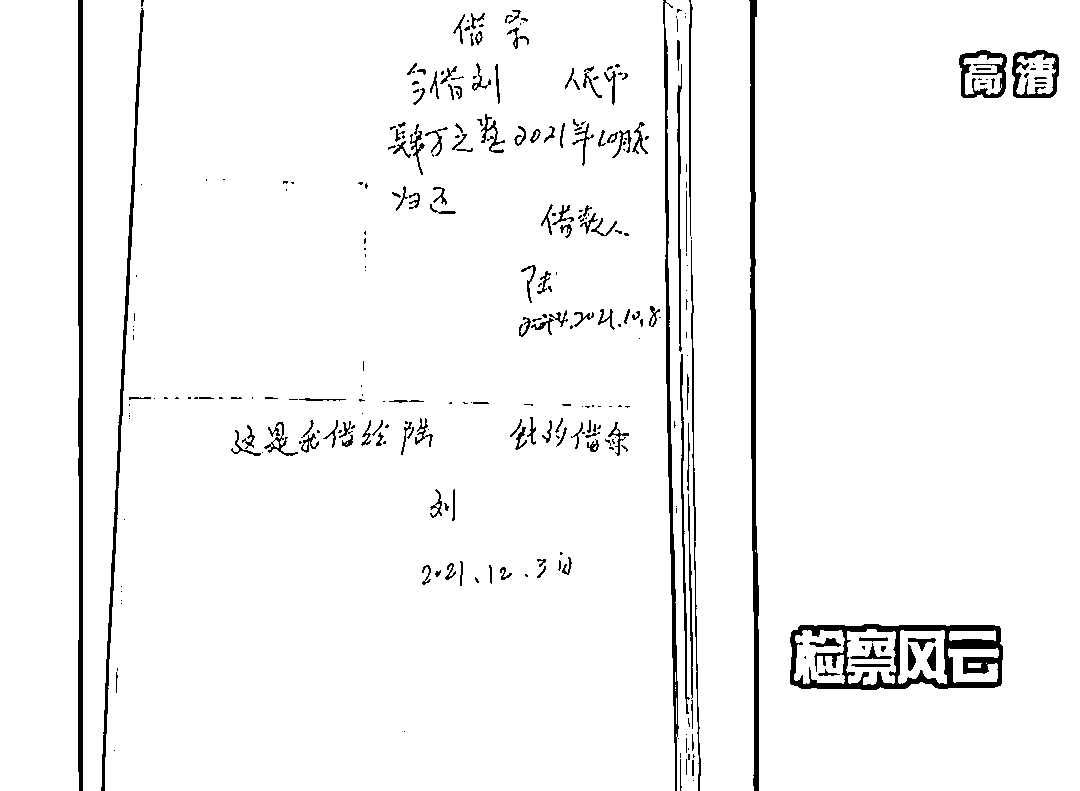 高清
借条
今借刘 人民币
肆万之整2021年10月底
归还
借款人
陆
2021.10.8
这是我借给陆 钱的借条
刘
2021.12.3日
检察风云